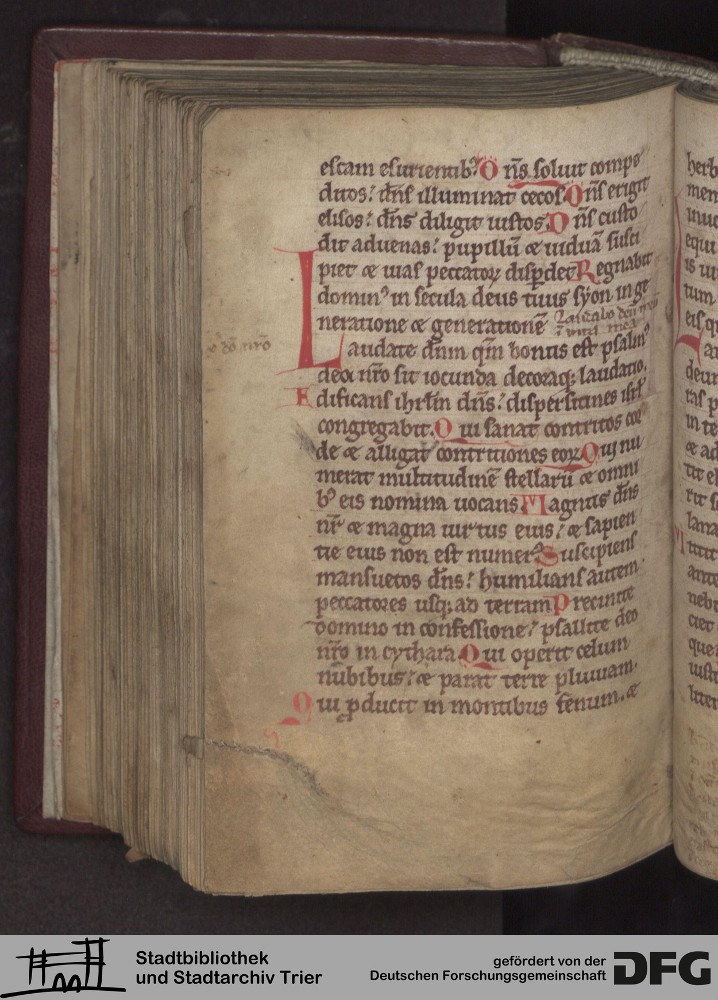 escam esurientib9 Dñs soluit compe
ditos: dñs illuminat cecos. Dñs erigit
elisos: dñs diligit iustos. Dñs custo
dit aduenas: pupillũ & uiduã susci
piet & uias peccatoꝝ disꝑdet Regnabit
domin9 in secula deus tuus syon in ge
neratione & generationẽ
Laudate dñm qm̃ bonus est psalm9
deo nr̃o sit iocunda decoraq; laudatio.
Edificans ihrl̃m dñs: dispersiones isrl̃
congregabit. Qui sanat contritos cor
de & alligat contritiones eoꝝ Qui nu
merat multitudinẽ stellarũ & omni
b9 eis nomina uocans Magnus dñs
nr̃ & magna uirtus eius: & sapien
tie eius non est numer9 Suscipiens
mansuetos dñs: humilians autem
peccatores usq; ad terram Precinite
domino in confessione: psallite deo
nr̃o in cythara Qui operit celum
nubibus: & parat terre pluuiam.
Qui ꝓducit in montibus fenum. &
herb
equi
tum
eis q
deur
ras p
in te
& ad
lana
ante
nebu
que
iusti
Stadtbibliothek
und Stadtarchiv Trier
gefördert von der
Deutschen Forschungsgemeinschaft
DFG